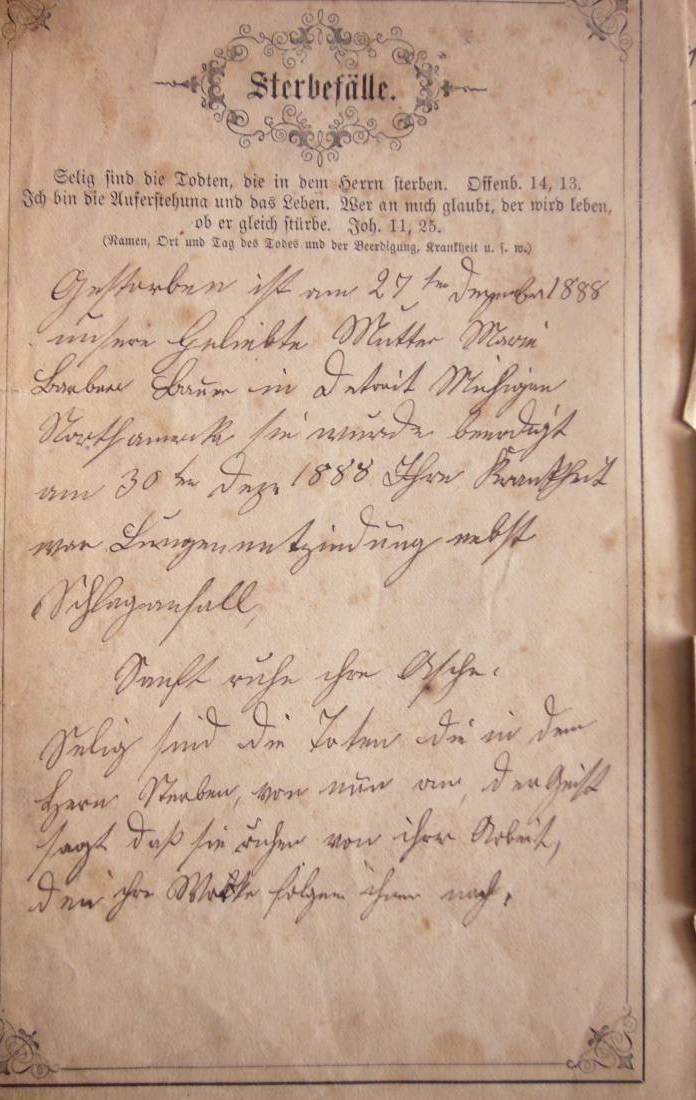 Sterbefälle.
Selig sind die Todten, die in dem Herrn sterben. Offenb. 14, 13.
Ich bin die Auferstehung und das Leben. Wer an mich glaubt, der wird leben,
ob er gleich stürbe. Joh. 11, 25.
(Namen, Ort und Tag des Todes und der Beerdigung, Krankheit u. s. w.)
Gestorben ist am 27 ten Dezember 1888
unsere Geliebte Mutter Marie
Barbara Bauer in Detroit Michigan
Northamerika sie wurde beerdigt
am 30 ten Deze 1888 Ihre Krankheit
war Lungenentzindung nebst
Schlaganfall,
Sanft ruhe ihre Asche.
Selig sind die Toten die in dem
Herrn Sterben, von nun an, der Geist
sagt daß sie ruhen von ihrer Arbeit,
den ihre Werke folgen ihnen nach.